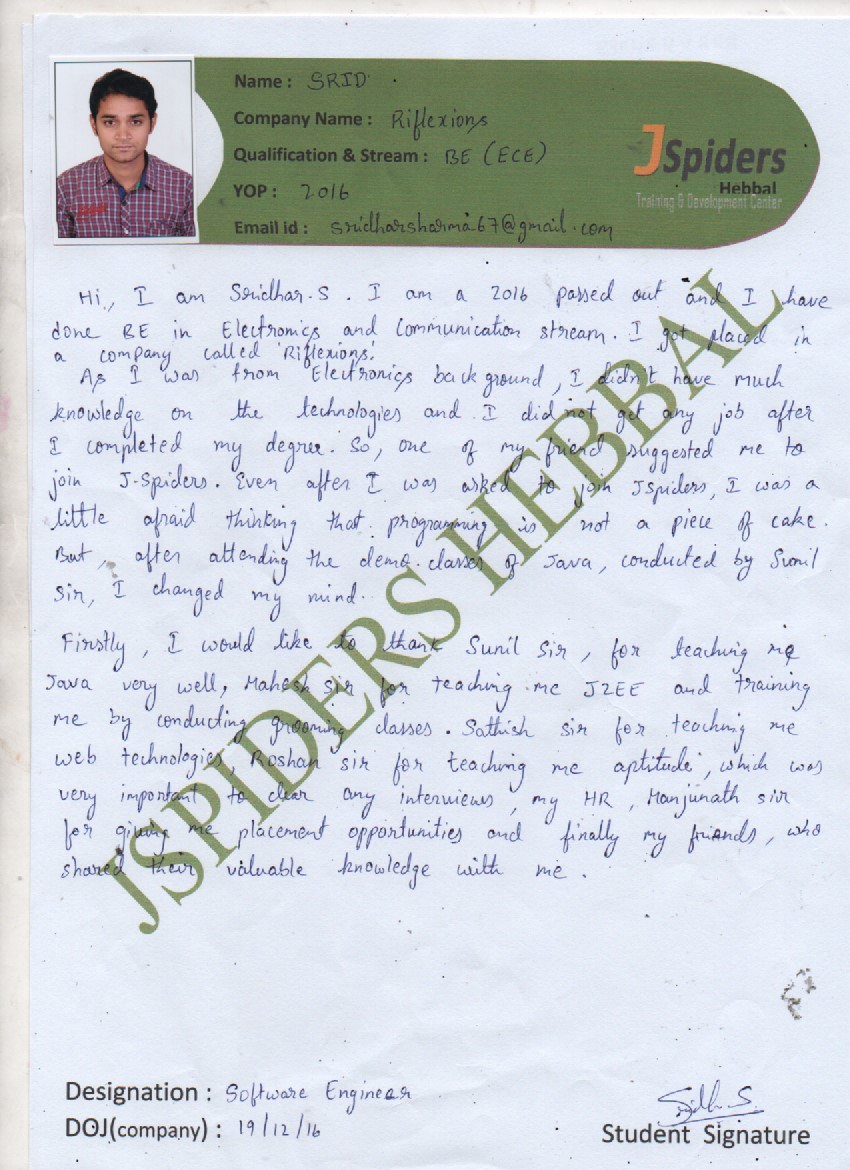 Name : SRID
Company Name : Riflexions
Qualification & Stream : BE (ECE)
YOP : 2016
Email id : sridharsharma67@gmail.com
JSpiders
Hebbal
Training & Development Center
Hi, I am Sridhar.S. I am a 2016 passed out and I have
done BE in Electronics and Communication stream. I got placed in
a company called 'Riflexions'.
As I was from Electronics back ground, I didn't have much
knowledge on the technologies and I did not get any job after
I completed my degree. So, one of my friend suggested me to
join J-Spiders. Even after I was asked to join JSpiders, I was a
little afraid thinking that programming is not a piece of cake.
But, after attending the demo classes of Java, conducted by Sunil
Sir, I changed my mind.
Firstly, I would like to thank Sunil Sir, for teaching me
Java very well, Mahesh sir for teaching me J2EE and training
me by conducting grooming classes. Sathish sir for teaching me
web technologies, Roshan sir for teaching me aptitude, which was
very important to clear any interviews, my HR, Manjunath sir
for giving me placement opportunities and finally my friends, who
shared their valuable knowledge with me.
JSPIDERS HEBBAL
Designation : Software Engineer
DOJ(company) : 19/12/16
Sridhar.S.
Student Signature